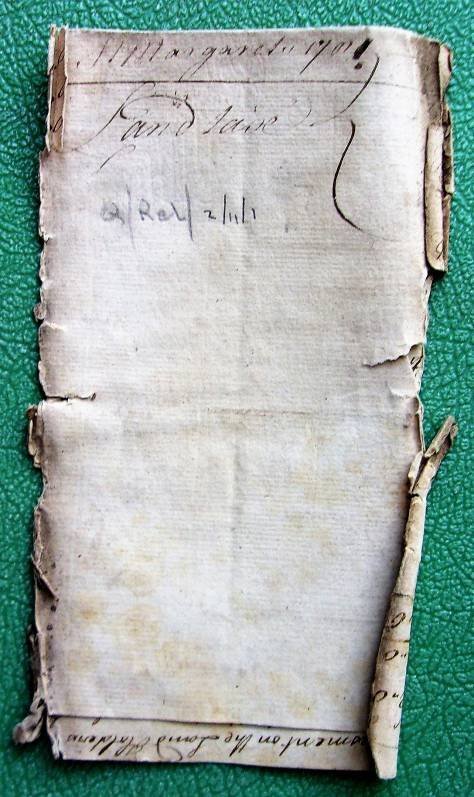 St Margarets 1701
Land taxe
Q/Rel/2/11/1
sment on the Land Holders